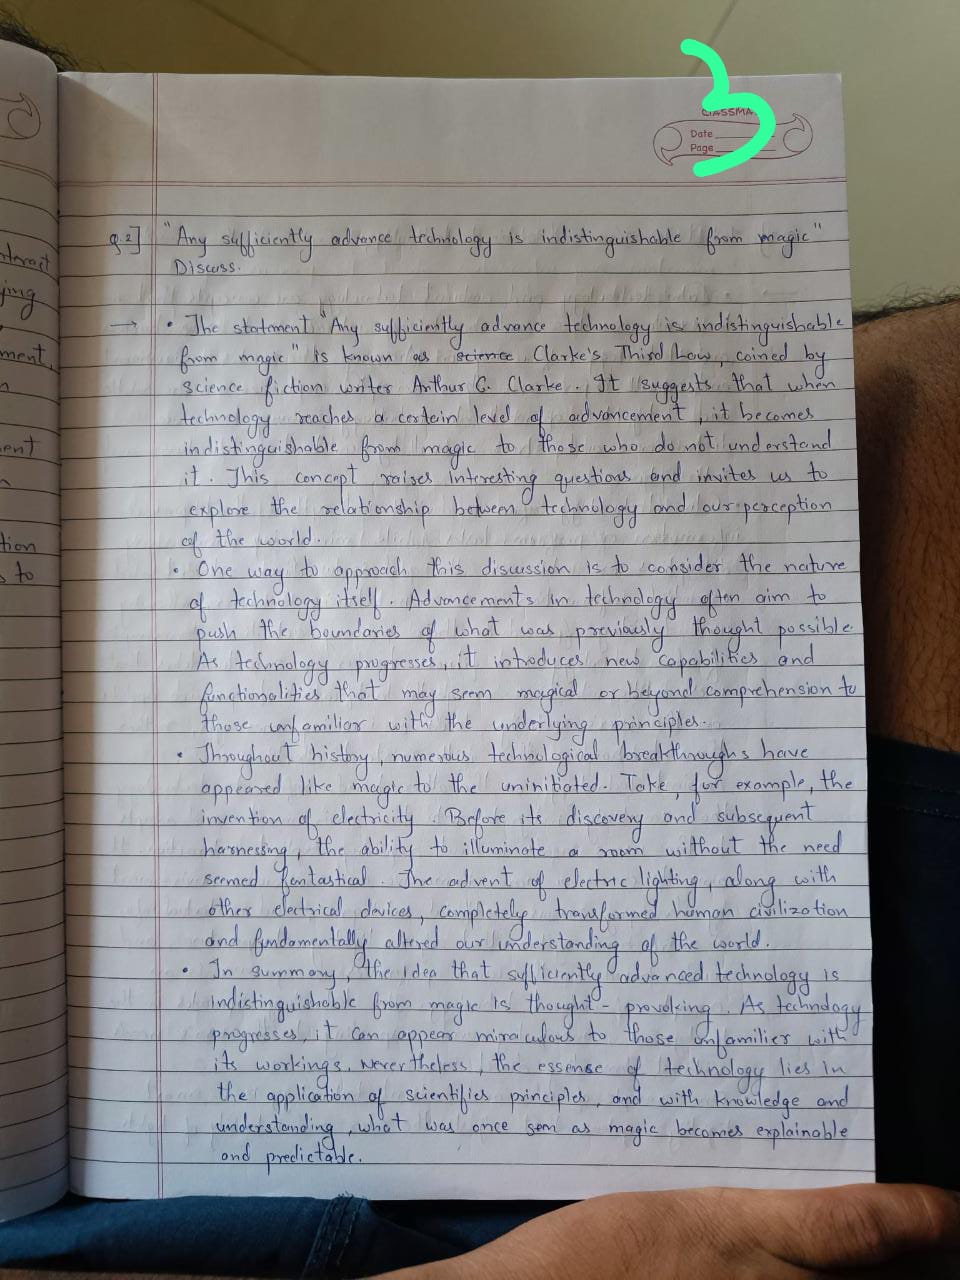 3
CLASSMA
Date
Page
Q.2] "Any sufficiently advance technology is indistinguishable from magic"
Discuss.
→ • The statement "Any sufficiently advance technology is indistinguishable
from magic" is known as science Clarke's Third Law, coined by
science fiction writer Arthur C. Clarke. It suggests that when
technology reaches a certain level of advancement, it becomes
indistinguishable from magic to those who do not understand
it. This concept raises interesting questions and invites us to
explore the relationship between technology and our perception
of the world.
• One way to approach this discussion is to consider the nature
of technology itself. Advancements in technology often aim to
push the boundaries of what was previously thought possible.
As technology progresses, it introduces new capabilities and
functionalities that may seem magical or beyond comprehension to
those unfamiliar with the underlying principles.
• Throughout history, numerous technological breakthroughs have
appeared like magic to the uninitiated. Take, for example, the
invention of electricity. Before its discovery and subsequent
harnessing, the ability to illuminate a room without the need
seemed fantastical. The advent of electric lighting, along with
other electrical devices, completely transformed human civilization
and fundamentally altered our understanding of the world.
• In summary, the idea that sufficiently advanced technology is
indistinguishable from magic is thought-provoking. As technology
progresses, it can appear miraculous to those unfamilier with
its workings. Nevertheless, the essence of technology lies in
the application of scientifics principles, and with knowledge and
understanding, what was once sem as magic becomes explainable
and predictable.
nteract
ying
ment,
ent
tion
s to